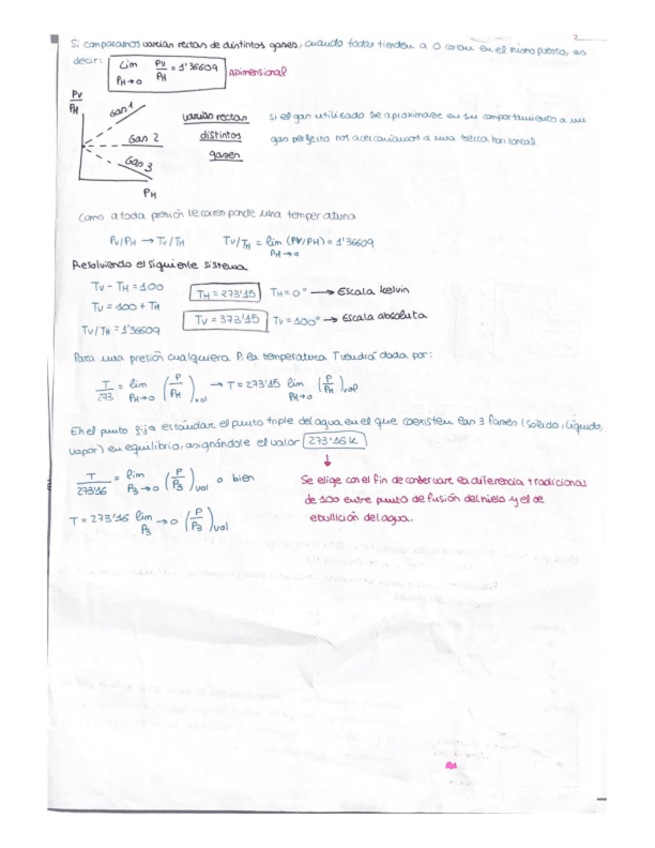 2
Si comparamos varias rectas de distintos gases, cuando todas tienden a 0 cortan en el mismo punto, es
decir: Lim PH→0 Pv/PH = 1'36609 adimensional
Pv/PH
Gas 1
Gas 2
Gas 3
PH
varias rectas
distintos
gases
Si el gas utilizado se aproximase en su comportamiento a un
gas perfecto nos acercaríamos a una recta horizontal.
Como a toda presión le corresponde una temperatura
Pv/PH → Tv/TH Tv/TH = lim PH→0 (Pv/PH) = 1'36609
Resolviendo el siguiente sistema
Tv - TH = 100
Tv = 100 + TH
Tv/TH = 1'36609
TH = 273'15 TH = 0° → Escala kelvin
Tv = 373'15 Tv = 100° → Escala absoluta
Para una presión cualquiera P, la temperatura T vendrá dada por:
T/273 = lim PH→0 (P/PH)vol → T = 273'15 lim PH→0 (P/PH)vol
En el punto fijo estándar el punto triple del agua en el que coexisten las 3 fases (sólido, líquido,
vapor) en equilibrio, asignándole el valor 273'16 K
T/273'16 = lim P3→0 (P/P3)vol o bien
T = 273'16 lim P3→0 (P/P3)vol
Se elige con el fin de conservar la diferencia tradicional
de 100 entre punto de fusión del hielo y el de
ebullición del agua.